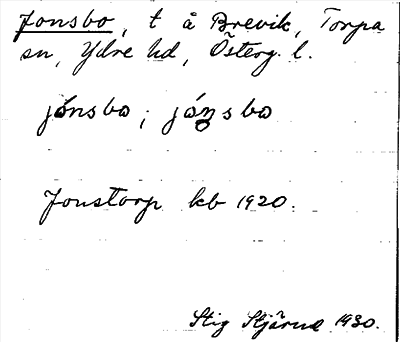 Jonsbo, t å Brevik, Torpa
sn, Ydre hd, Österg. l.
jónsbo; jónsbo
Jonstorp kb 1920.
Stig Stjärne 1930.